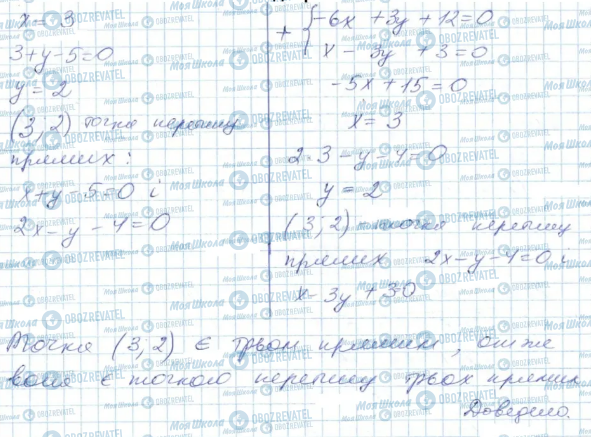 x = 3
3+y-5=0
y = 2
(3; 2) точка перетину
прямих:
x+y-5=0 і
2x-y-4=0
+ {-6x +3y +12=0
x - 3y +3=0
-5x+15=0
x= 3
2·3-y-4=0
y = 2
(3; 2) - точка перетину
прямих 2x-y-4=0 і
x-3y+30
Точка (3; 2) є трьом прямим, отже
вона є точкою перетину трьох прямих.
Доведено.
Моя Школа
OBOZREVATEL